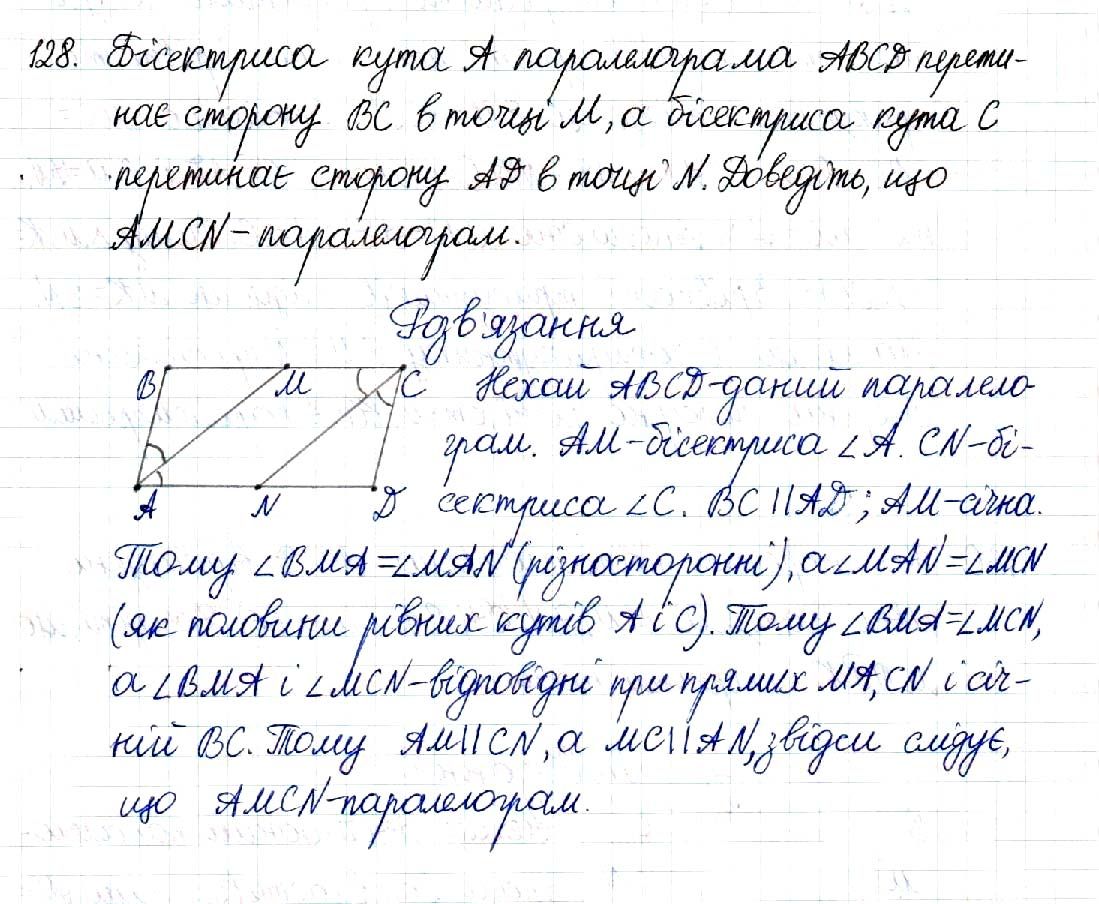 128. Бісектриса кута A паралелограма ABCD перети-
нає сторону BC в точці M, а бісектриса кута C
перетинає сторону AD в точці N. Доведіть, що
AMCN – паралелограм.
Розв'язання
B M C
A N D
Нехай ABCD – даний парарело-
грам. AM – бісектриса ∠A. CN – бі-
сектриса ∠C. BC || AD; AM – січна.
Тому ∠BMA = ∠MAN (різносторонні), а ∠MAN = ∠MCN
(як половини рівних кутів A і C). Тому ∠BMA = ∠MCN,
а ∠BMA і ∠MCN – відповідні при прямих MA, CN і січ-
ній BC. Тому AM || CN, а MC || AN, звідси слідує,
що AMCN – паралелограм.